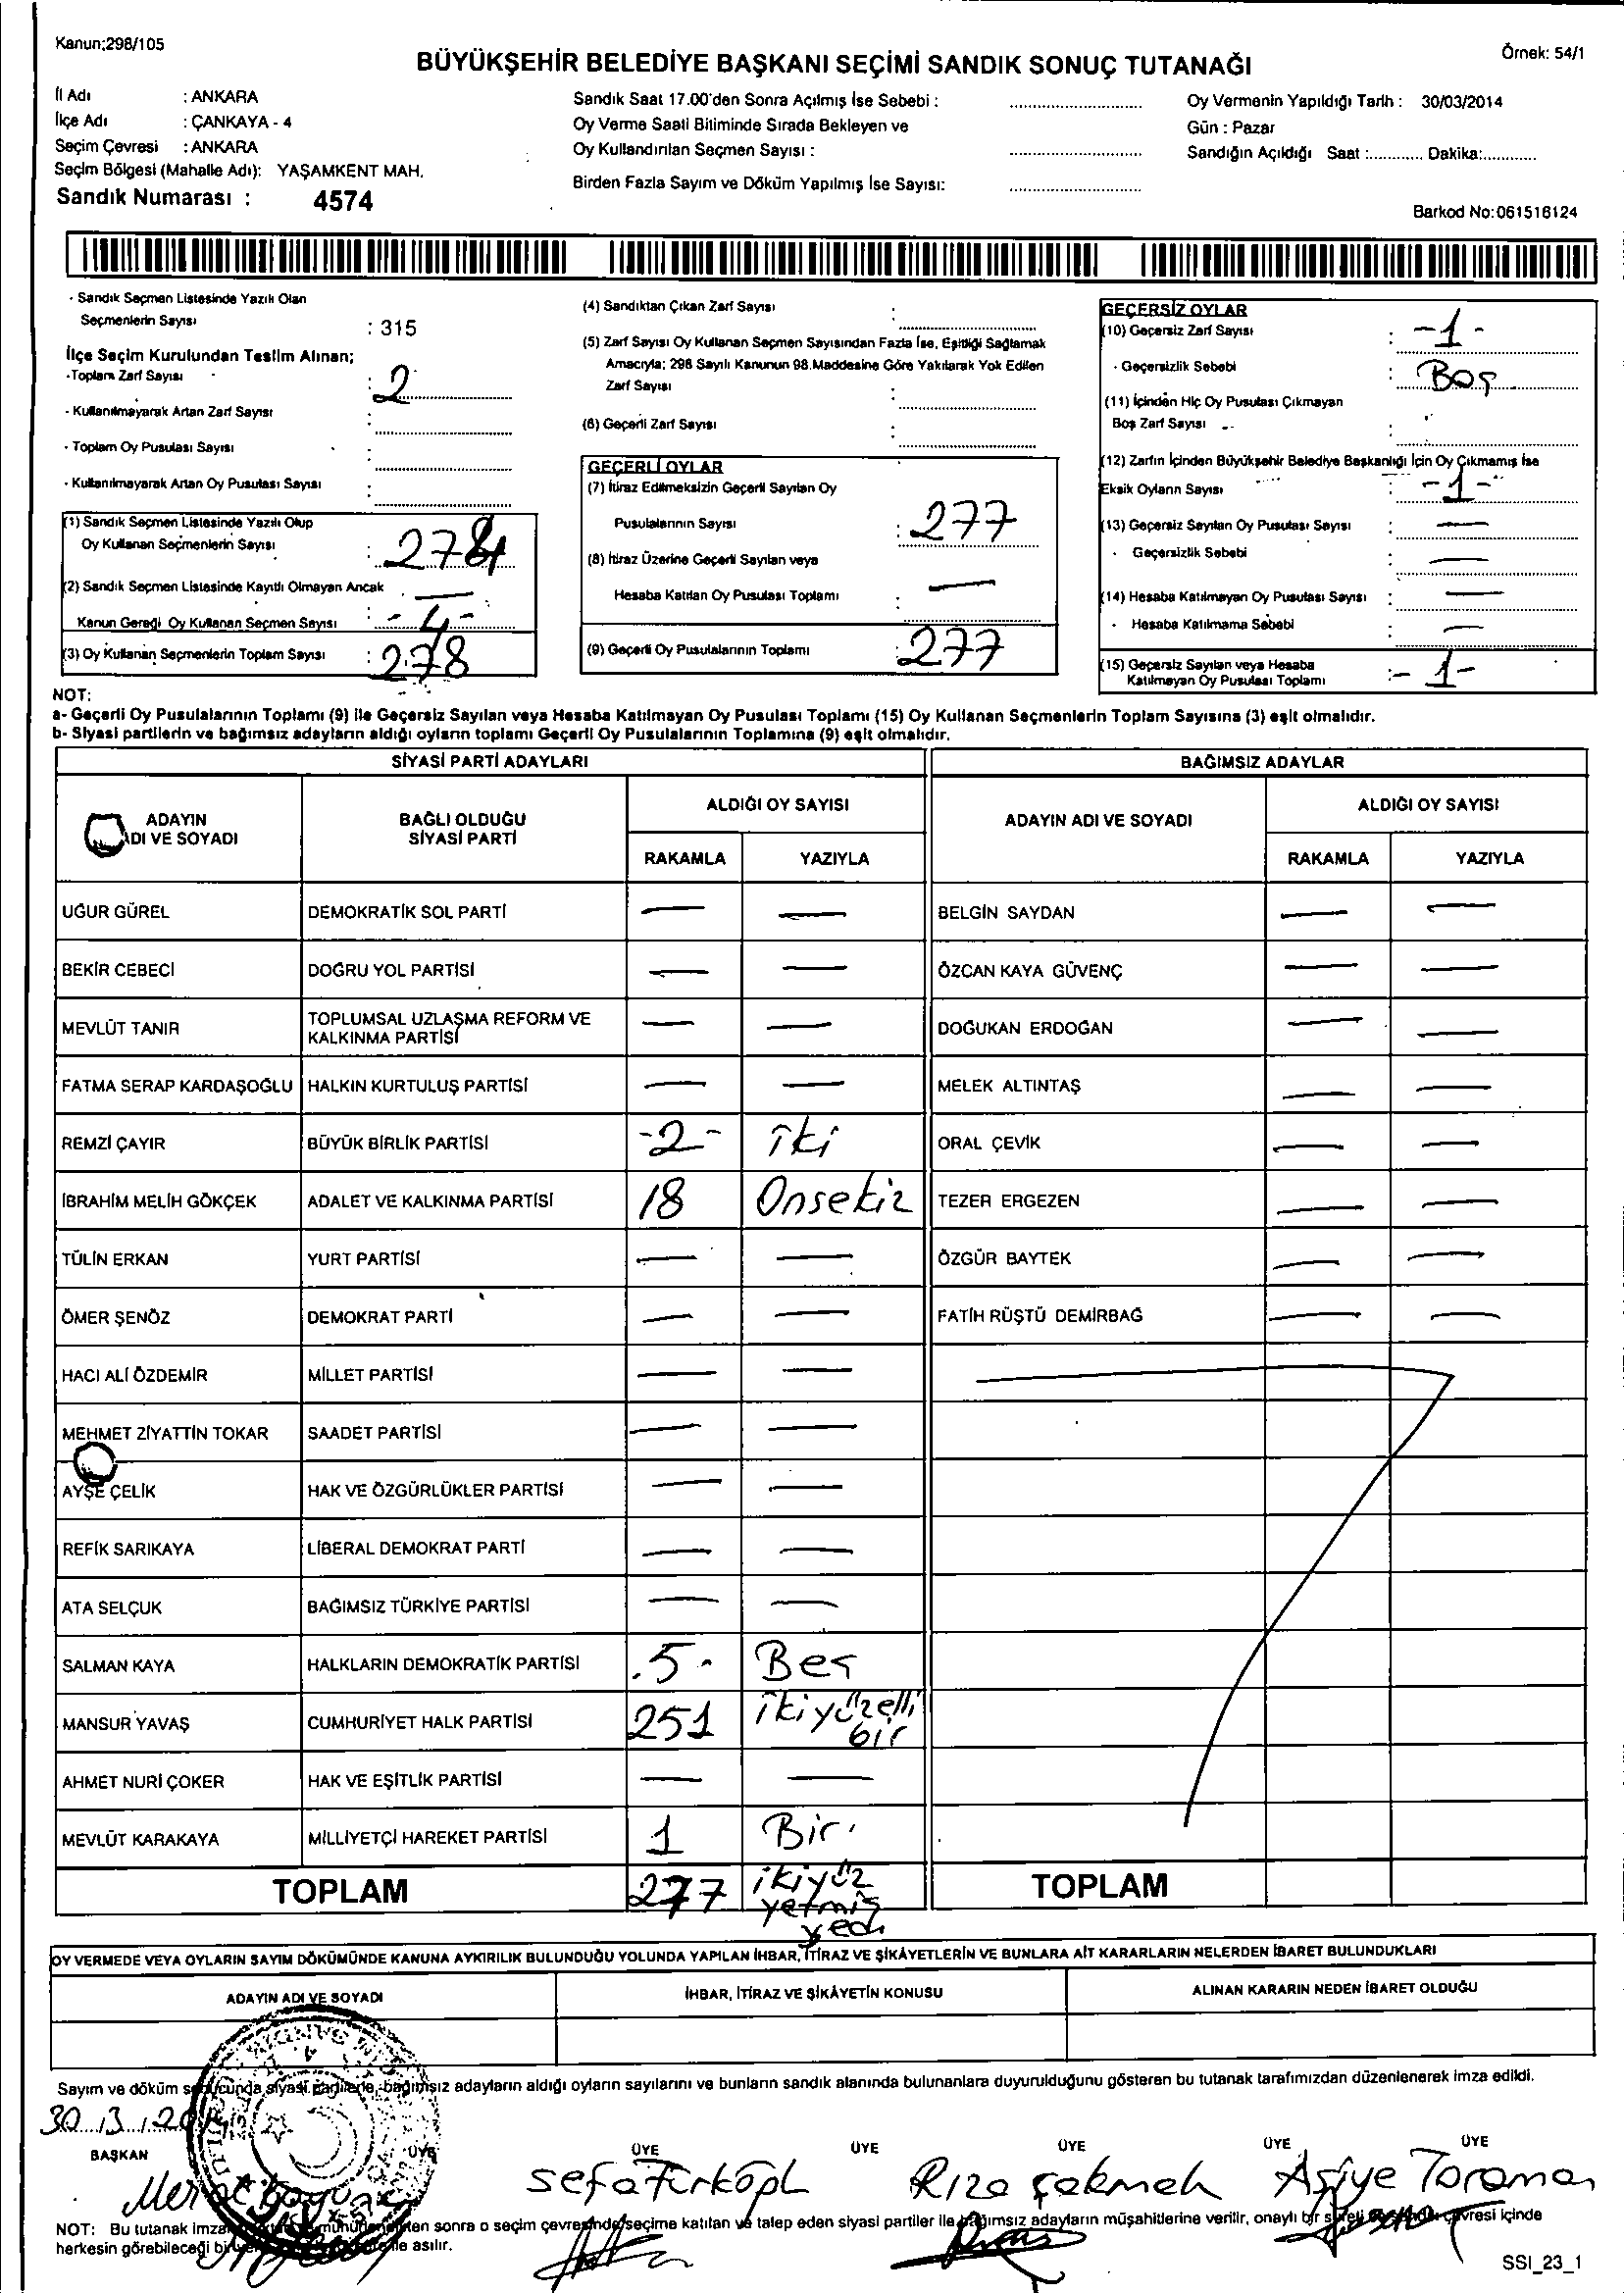 Kanun;298/105
BÜYÜKŞEHİR BELEDİYE BAŞKANI SEÇİMİ SANDIK SONUÇ TUTANAĞI
Örnek: 54/1
İl Adı : ANKARA
İlçe Adı : ÇANKAYA - 4
Seçim Çevresi : ANKARA
Seçim Bölgesi (Mahalle Adı): YAŞAMKENT MAH.
Sandık Numarası : 4574
Sandık Saat 17.00'den Sonra Açılmış İse Sebebi :
Oy Verme Saati Bitiminde Sırada Bekleyen ve
Oy Kullandırılan Seçmen Sayısı :
Birden Fazla Sayım ve Döküm Yapılmış İse Sayısı:
Oy Vermenin Yapıldığı Tarih : 30/03/2014
Gün : Pazar
Sandığın Açıldığı Saat :............ Dakika:............
Barkod No:061516124
- Sandık Seçmen Listesinde Yazılı Olan
Seçmenlerin Sayısı : 315
İlçe Seçim Kurulundan Teslim Alınan;
-Toplam Zarf Sayısı : 2
- Kullanılmayarak Artan Zarf Sayısı :
- Toplam Oy Pusulası Sayısı :
- Kullanılmayarak Artan Oy Pusulası Sayısı :
(1) Sandık Seçmen Listesinde Yazılı Olup
Oy Kullanan Seçmenlerin Sayısı : 274
(2) Sandık Seçmen Listesinde Kayıtlı Olmayan Ancak
Kanun Gereği Oy Kullanan Seçmen Sayısı : - 4 -
(3) Oy Kullanan Seçmenlerin Toplam Sayısı : 278
(4) Sandıktan Çıkan Zarf Sayısı :
(5) Zarf Sayısı Oy Kullanan Seçmen Sayısından Fazla İse, Eşitliği Sağlamak
Amacıyla; 298 Sayılı Kanunun 98.Maddesine Göre Yakılarak Yok Edilen
Zarf Sayısı :
(6) Geçerli Zarf Sayısı :
GEÇERLİ OYLAR
(7) İtiraz Edilmeksizin Geçerli Sayılan Oy
Pusulalarının Sayısı : 277
(8) İtiraz Üzerine Geçerli Sayılan veya
Hesaba Katılan Oy Pusulası Toplamı : —
(9) Geçerli Oy Pusulalarının Toplamı : 277
GEÇERSİZ OYLAR
(10) Geçersiz Zarf Sayısı : -1-
- Geçersizlik Sebebi : Boş
(11) İçinden Hiç Oy Pusulası Çıkmayan
Boş Zarf Sayısı :
(12) Zarfın İçinden Büyükşehir Belediye Başkanlığı İçin Oy Çıkmamış İse
Eksik Oyların Sayısı : -1-
(13) Geçersiz Sayılan Oy Pusulası Sayısı : —
- Geçersizlik Sebebi : —
(14) Hesaba Katılmayan Oy Pusulası Sayısı : —
- Hesaba Katılmama Sebebi : —
(15) Geçersiz Sayılan veya Hesaba
Katılmayan Oy Pusulası Toplamı : - 1-
NOT:
a- Geçerli Oy Pusulalarının Toplamı (9) ile Geçersiz Sayılan veya Hesaba Katılmayan Oy Pusulası Toplamı (15) Oy Kullanan Seçmenlerin Toplam Sayısına (3) eşit olmalıdır.
b- Siyasi partilerin ve bağımsız adayların aldığı oyların toplamı Geçerli Oy Pusulalarının Toplamına (9) eşit olmalıdır.
SİYASİ PARTİ ADAYLARI
BAĞIMSIZ ADAYLAR
ADAYIN
ADI VE SOYADI
BAĞLI OLDUĞU
SİYASİ PARTİ
ALDIĞI OY SAYISI
RAKAMLA YAZIYLA
ADAYIN ADI VE SOYADI
ALDIĞI OY SAYISI
RAKAMLA YAZIYLA
UĞUR GÜREL DEMOKRATİK SOL PARTİ — — BELGİN SAYDAN — —
BEKİR CEBECİ DOĞRU YOL PARTİSİ — — ÖZCAN KAYA GÜVENÇ — —
MEVLÜT TANIR TOPLUMSAL UZLAŞMA REFORM VE
KALKINMA PARTİSİ — — DOĞUKAN ERDOĞAN — —
FATMA SERAP KARDAŞOĞLU HALKIN KURTULUŞ PARTİSİ — — MELEK ALTINTAŞ — —
REMZİ ÇAYIR BÜYÜK BİRLİK PARTİSİ -2- iki ORAL ÇEVİK — —
İBRAHİM MELİH GÖKÇEK ADALET VE KALKINMA PARTİSİ 18 Onsekiz TEZER ERGEZEN — —
TÜLİN ERKAN YURT PARTİSİ — — ÖZGÜR BAYTEK — —
ÖMER ŞENÖZ DEMOKRAT PARTİ — — FATİH RÜŞTÜ DEMİRBAĞ — —
HACI ALİ ÖZDEMİR MİLLET PARTİSİ — —
MEHMET ZİYATTİN TOKAR SAADET PARTİSİ — —
AYŞE ÇELİK HAK VE ÖZGÜRLÜKLER PARTİSİ — —
REFİK SARIKAYA LİBERAL DEMOKRAT PARTİ — —
ATA SELÇUK BAĞIMSIZ TÜRKİYE PARTİSİ — —
SALMAN KAYA HALKLARIN DEMOKRATİK PARTİSİ .5- Beş
MANSUR YAVAŞ CUMHURİYET HALK PARTİSİ 251 ikiyüzelli
bir
AHMET NURİ ÇOKER HAK VE EŞİTLİK PARTİSİ — —
MEVLÜT KARAKAYA MİLLİYETÇİ HAREKET PARTİSİ 1 Bir
TOPLAM 277 ikiyüz
yetmiş
yedi
TOPLAM
OY VERMEDE VEYA OYLARIN SAYIM DÖKÜMÜNDE KANUNA AYKIRILIK BULUNDUĞU YOLUNDA YAPILAN İHBAR, İTİRAZ VE ŞİKÂYETLERİN VE BUNLARA AİT KARARLARIN NELERDEN İBARET BULUNDUKLARI
ADAYIN ADI VE SOYADI İHBAR, İTİRAZ VE ŞİKÂYETİN KONUSU ALINAN KARARIN NEDEN İBARET OLDUĞU
Sayım ve döküm sonucunda siyasi partilerle, bağımsız adayların aldığı oyların sayılarını ve bunların sandık alanında bulunanlara duyurulduğunu gösteren bu tutanak tarafımızdan düzenlenerek imza edildi.
30.13.12014
BAŞKAN ÜYE ÜYE ÜYE ÜYE ÜYE ÜYE
Sefa Türköpl Rıza Çakmak Asiye Toraman
NOT: Bu tutanak sonra o seçim çevresinde seçime katılan ve talep eden siyasi partiler ile bağımsız adayların müşahitlerine verilir, onaylı bir sureti çevresi içinde
herkesin görebileceği bir ile asılır.
SSI_23_1